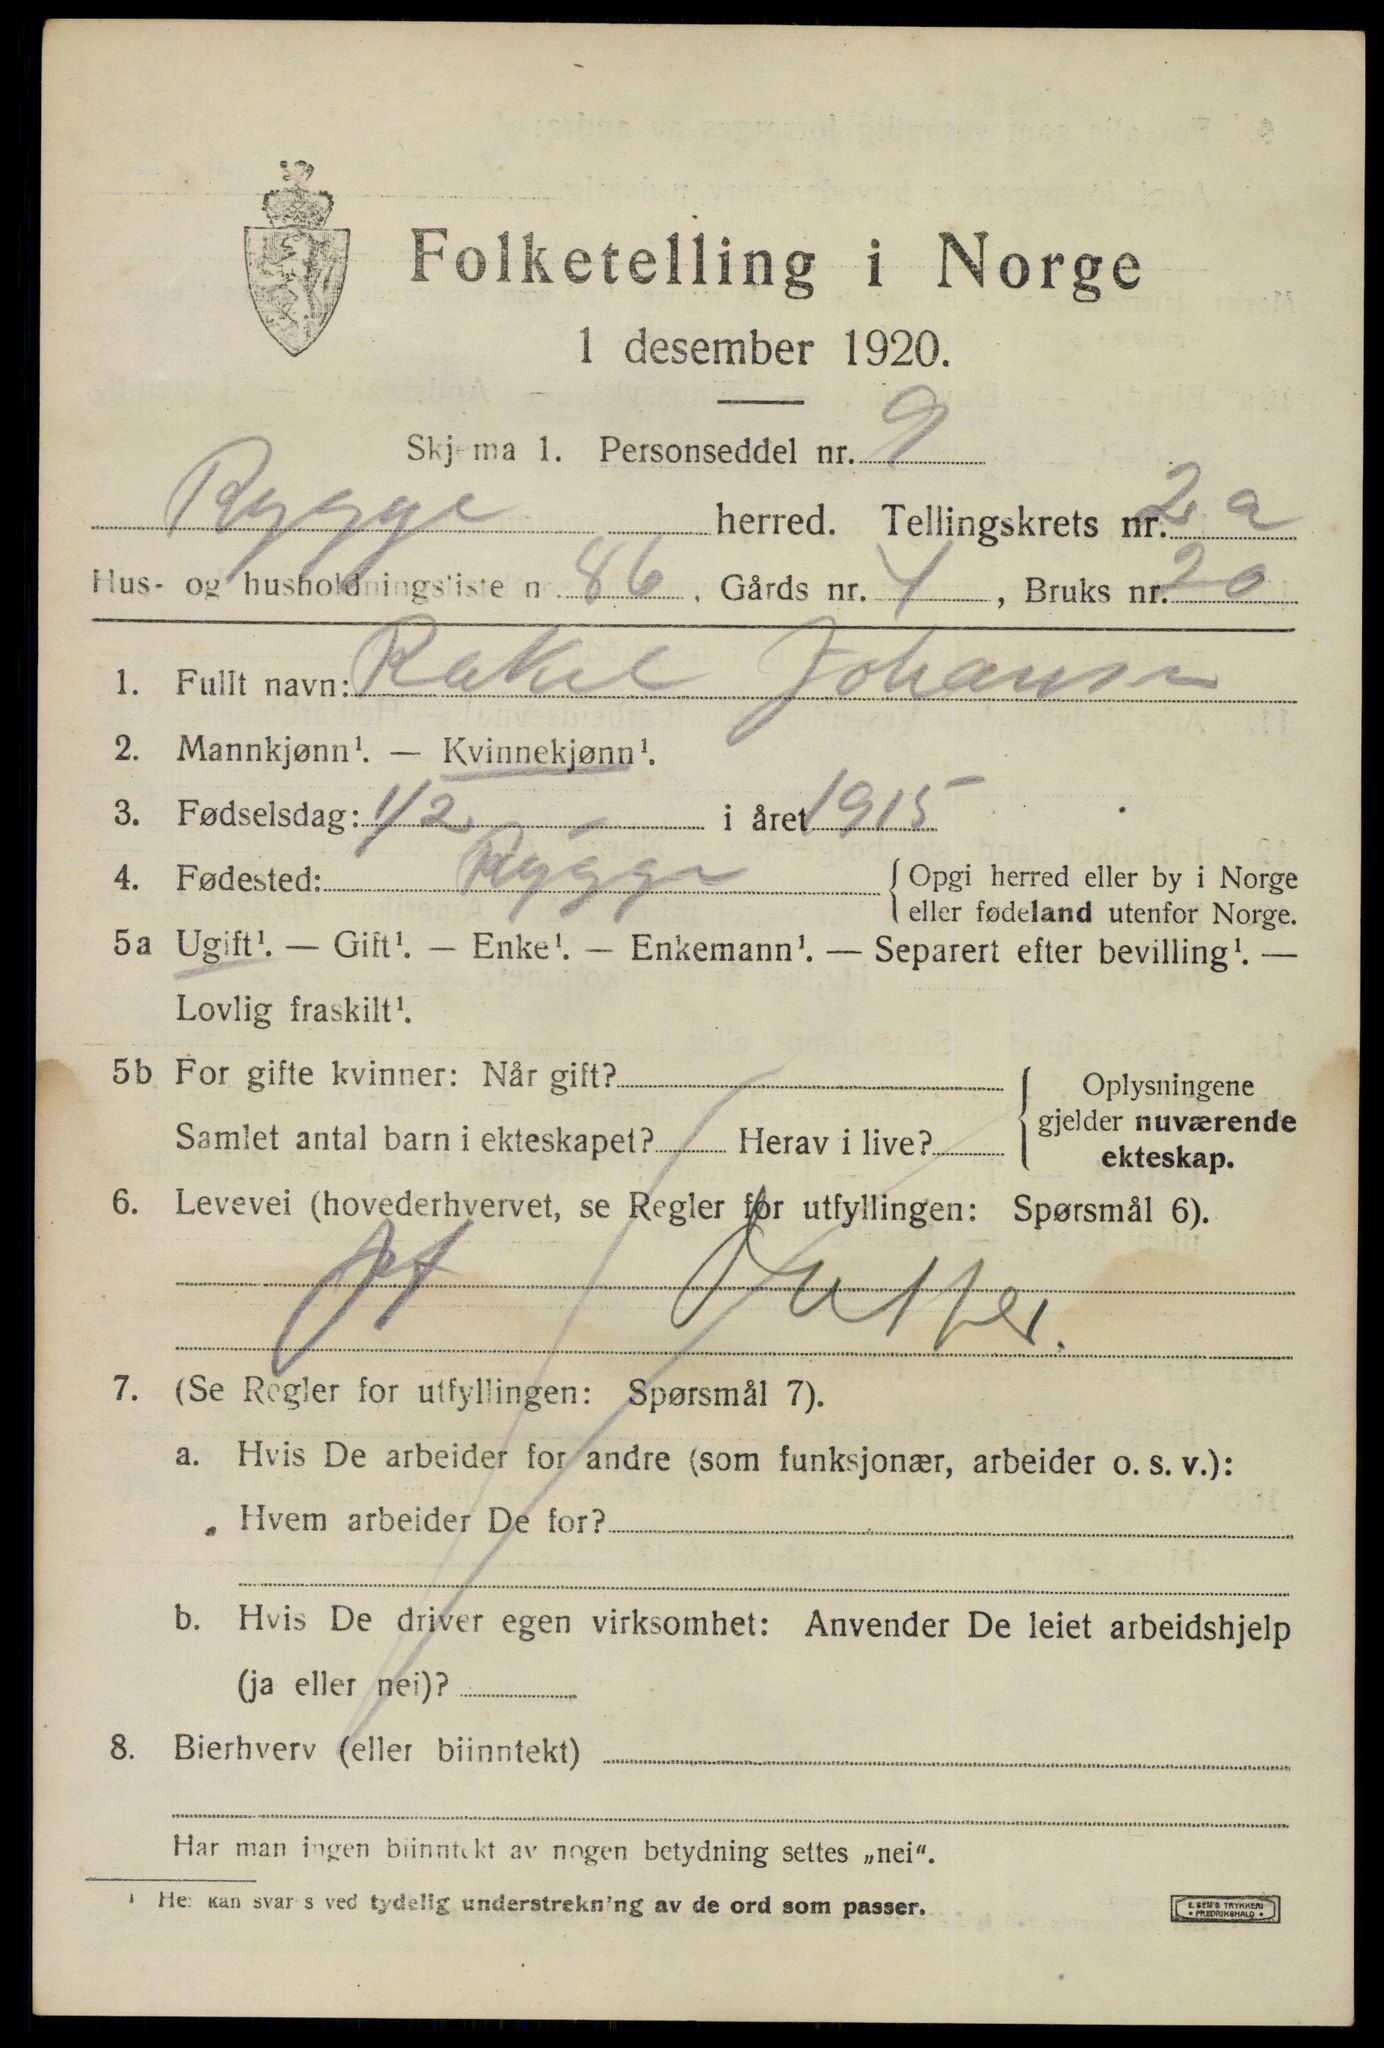 Folketelling i Norge
1 desember 1920.
Skjema 1. Personseddel nr. 9
Rygge herred. Tellingskrets nr. 2 a
Hus- og husholdningsliste nr. 86, Gårds nr. 4, Bruks nr. 20
1. Fullt navn: Rakel Johansen
2. Mannkjønn¹. — Kvinnekjønn¹.
3. Fødselsdag: 1/2 i året 1915
4. Fødested: Rygge { Opgi herred eller by i Norge
eller fødeland utenfor Norge.
5a Ugift¹. — Gift¹. — Enke¹. — Enkemann¹. — Separert efter bevilling¹. —
Lovlig fraskilt¹.
5b For gifte kvinner: Når gift?
Samlet antal barn i ekteskapet? Herav i live?
{ Oplysningene
gjelder nuværende
ekteskap.
6. Levevei (hovederhvervet, se Regler for utfyllingen: Spørsmål 6).
7. (Se Regler for utfyllingen: Spørsmål 7).
a. Hvis De arbeider for andre (som funksjonær, arbeider o. s. v.):
Hvem arbeider De for?
b. Hvis De driver egen virksomhet: Anvender De leiet arbeidshjelp
(ja eller nei)?
8. Bierhverv (eller biinntekt)
Har man ingen biinntekt av nogen betydning settes „nei“.
¹ Her kan svares ved tydelig understrekning av de ord som passer.
E. SEM'S TRYKKERI
• FREDRIKSHALD •